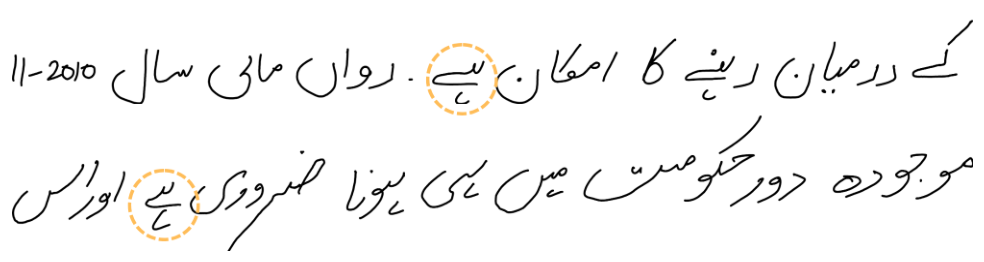 کے درمیان رہنے کا امکان ہے. رواں مالی سال 2010-11
موجودہ دور حکومت میں ہی ہونا ضروری ہے اور اس